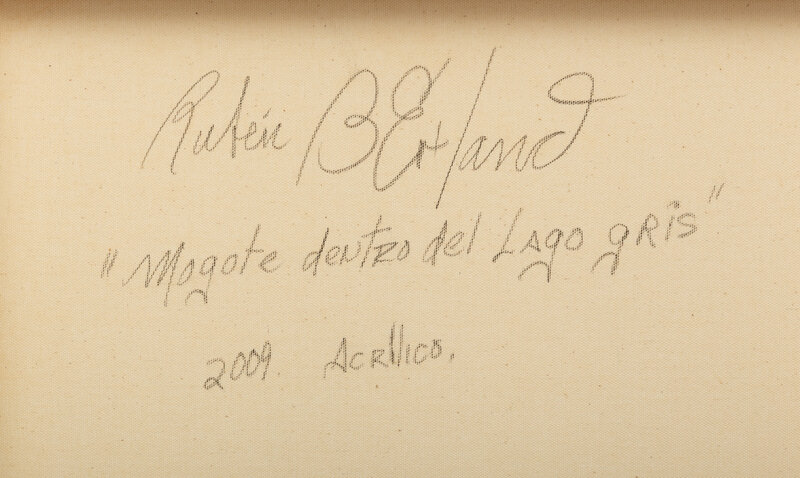 Rubén BErland
"Mogote dentro del Lago gris"
2009. Acrilico.